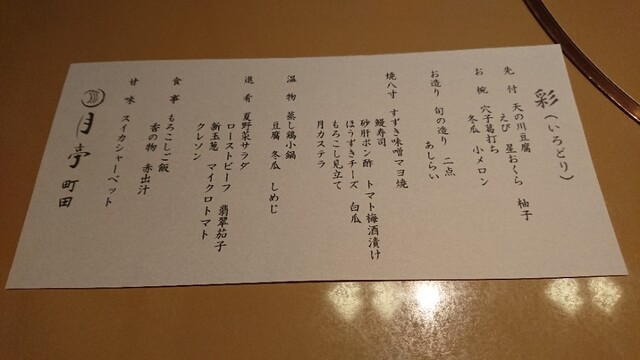 彩(いろどり)
先付 天の川豆腐
えび 星おくら 柚子
お椀 穴子葛打ち
冬瓜 小メロン
お造り 旬の造り 二点
あしらい
焼八寸 すずき味噌マヨ焼
鰻寿司
砂肝ポン酢 トマト梅酒漬け
ほうずきチーズ 白瓜
もろこし見立て
月カステラ
温物 蒸し鶏小鍋
豆腐 冬瓜 しめじ
進肴 夏野菜サラダ
ローストビーフ 翡翠茄子
新玉葱 マイクロトマト
クレソン
食事 もろこしご飯
香の物 赤出汁
甘味 スイカシャーベット
月亭 町田